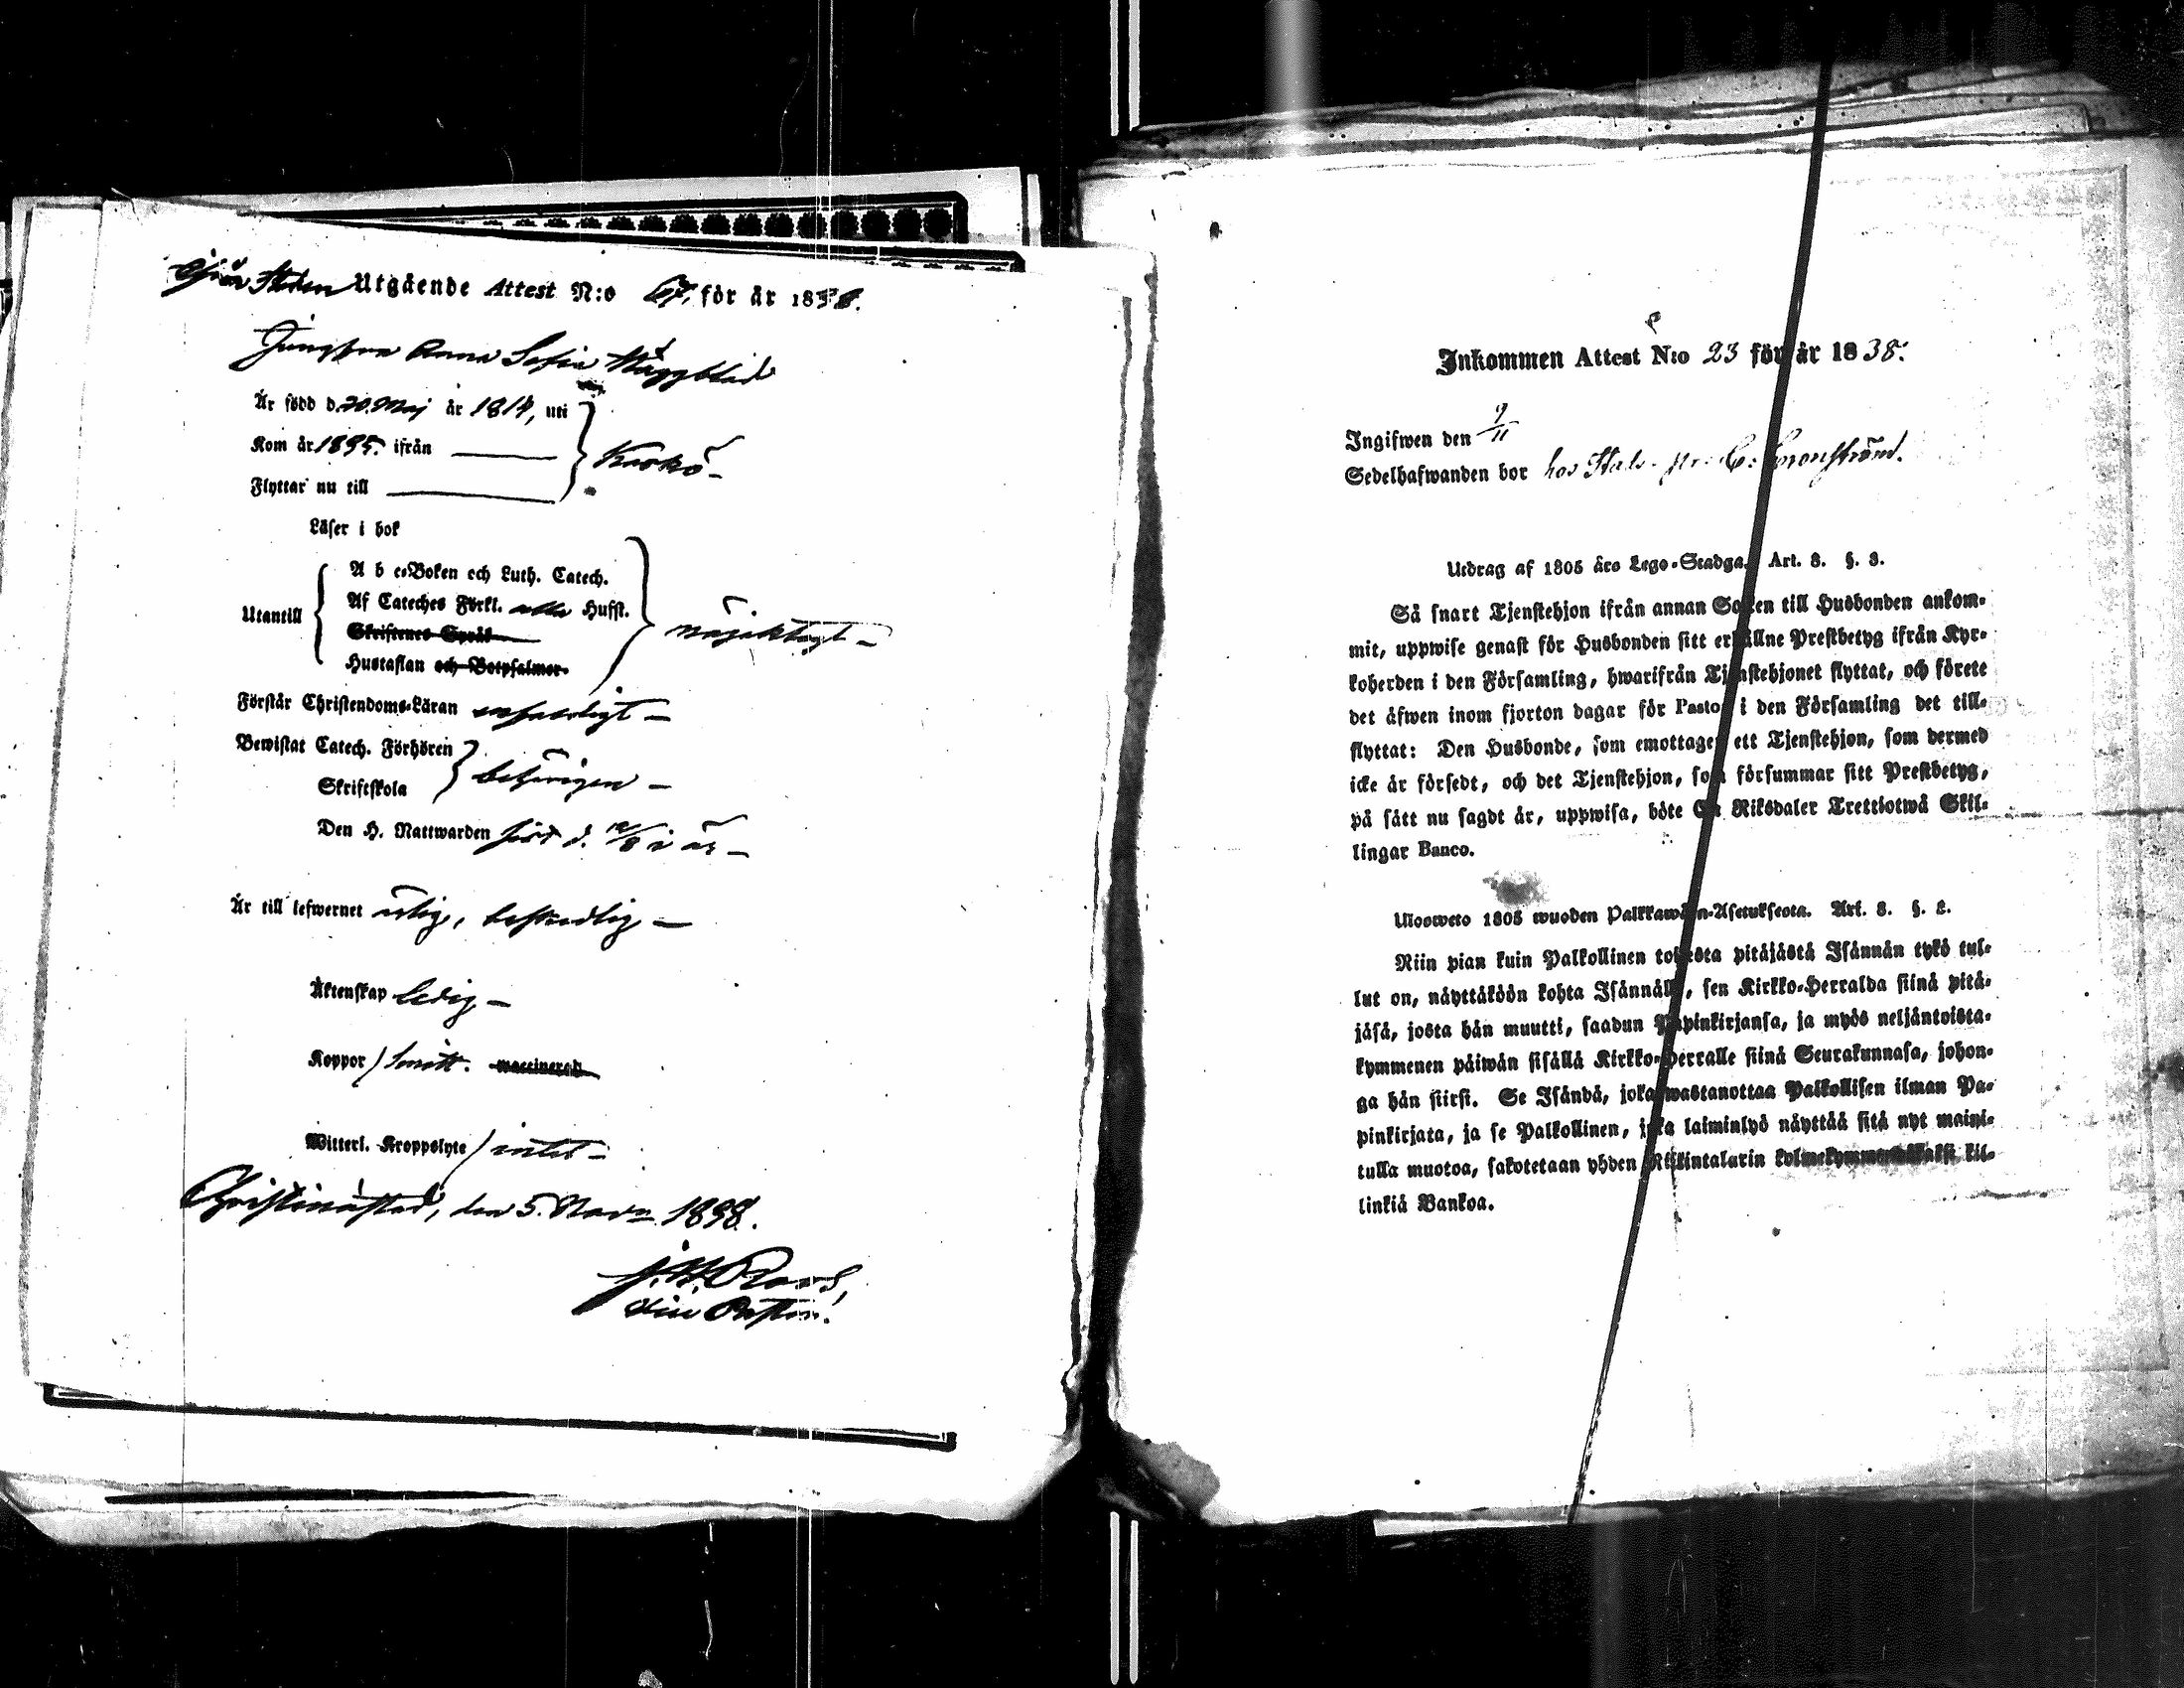 från Staden Utgående Attest N:o 67. för år 1838.
Jungfrun Anna Sofia Häggblad
Är född d. 20. Maj år 1814, uti
Kom år 1835. ifrån
Kaskö
Flyttar nu till
Läser i bok
Utantill
A b c-Boken och Luth. Catech.
Af Cateches Förkl. alla Hufst.
Skriftenes Språk
Hustaflan och Botpsalmer.
nöjaktigt
Förstår Christendoms-Läran enfaldigt
Bewistat Catech. Förhören
Skriftskola
behörigen
Den H. Nattwarden sist d. 12/8 i år
Är till lefwernet ärlig, beskedlig
Äktenskap ledig
Koppor haft. vaccinerad
Witterl. Kroppslyte intet
Christinæstad, den 5. Nov. 1838.
Vice Pastor.
Inkommen Attest N:o 23 för år 1838.
Ingifwen den 9/11
Sedelhafwanden bor hos C: Cronström.
Utdrag af 1805 års Lego-Stadga. Art. 8. §. 3.
Så snart Tjenstehjon ifrån annan Socken till Husbonden ankom-
mit, uppwise genast för Husbonden sitt erhållne Prestbetyg ifrån Kyr-
koherden i den Församling, hwarifrån Tjenstehjonet flyttat, och förete
det äfwen inom fjorton dagar för Pastor i den Församling det till-
flyttat: Den Husbonde, som emottager ett Tjenstehjon, som dermed
icke är försedt, och det Tjenstehjon, som försummar sitt Prestbetyg,
på sätt nu sagdt är, uppwisa, böte En Riksdaler Trettiotwå Skil-
lingar Banco.
Ulosweto 1805 wuoden Palkkawäen-Asetuksesta. Art. 8. §. 2.
Niin pian kuin Palkollinen toisesta pitäjästä Isännän tykö tul-
lut on, näyttäköön kohta Isännälle, sen Kirkko-Herralda siinä pitä-
jäsä, josta hän muutti, saadun Papinkirjansa, ja myös neljäntoista-
kymmenen päiwän sisällä Kirkko-Herralle siinä Seurakunnasa, johon-
ga hän siirsi. Se Isändä, joka wastanottaa Palkollisen ilman Pa-
pinkirjata, ja se Palkollinen, joka laiminlyö näyttää sitä nyt maini-
tulla muotoa, sakotetaan yhden Riikintalarin kolmekymmendäkaksi kil-
linkiä Bankoa.